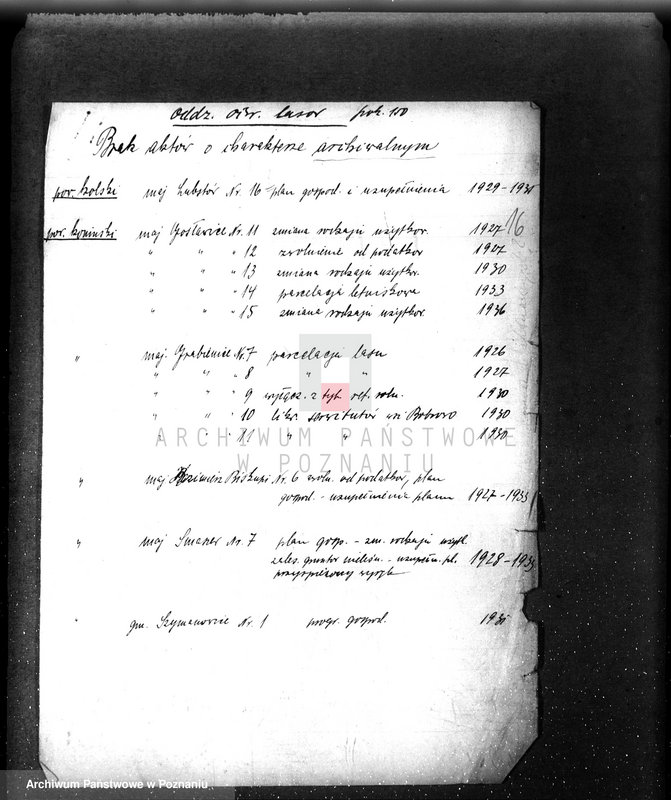 oddz. lasów pok. 110
Brak aktów o charakterze archiwalnym
pow. kolski maj Lubstów Nr. 16 plan gospod. i uzupełnienia 1929-1931
16
pow. koniński maj Gosławice Nr. 11 zmiana rodzaju użytkow. 1927
" " " 12 zwolnienie od podatków 1927
" " " 13 zmiana rodzaju użytkow. 1930
" " " 14 parcelacja letniskowa 1933
" " " 15 zmiana rodzaju użytkow. 1936
" maj. Grabienice Nr. 7 parcelacja lasu 1926
" " " 8 " " 1927
" " " 9 wyłącz. z tyt. 1930
" " " 10 serwitutów Bobrowo 1930
" " " 11 " " 1930
" maj Kazimierz Biskupi Nr. 6 zwoln. od podatków, plan
gospod. - uzupełnienia planu 1927-1933
" maj Nr. 7 plan gosp. - zm. rodzaju użytk.
zales. gruntów - uzupełn. pl. 1928-1935
przyspieszony wyrąb
" gm. Szymanowice Nr. 1 progr. gospod. 1931
ARCHIWUM PAŃSTWOWE
W POZNANIU
Archiwum Państwowe w Poznaniu